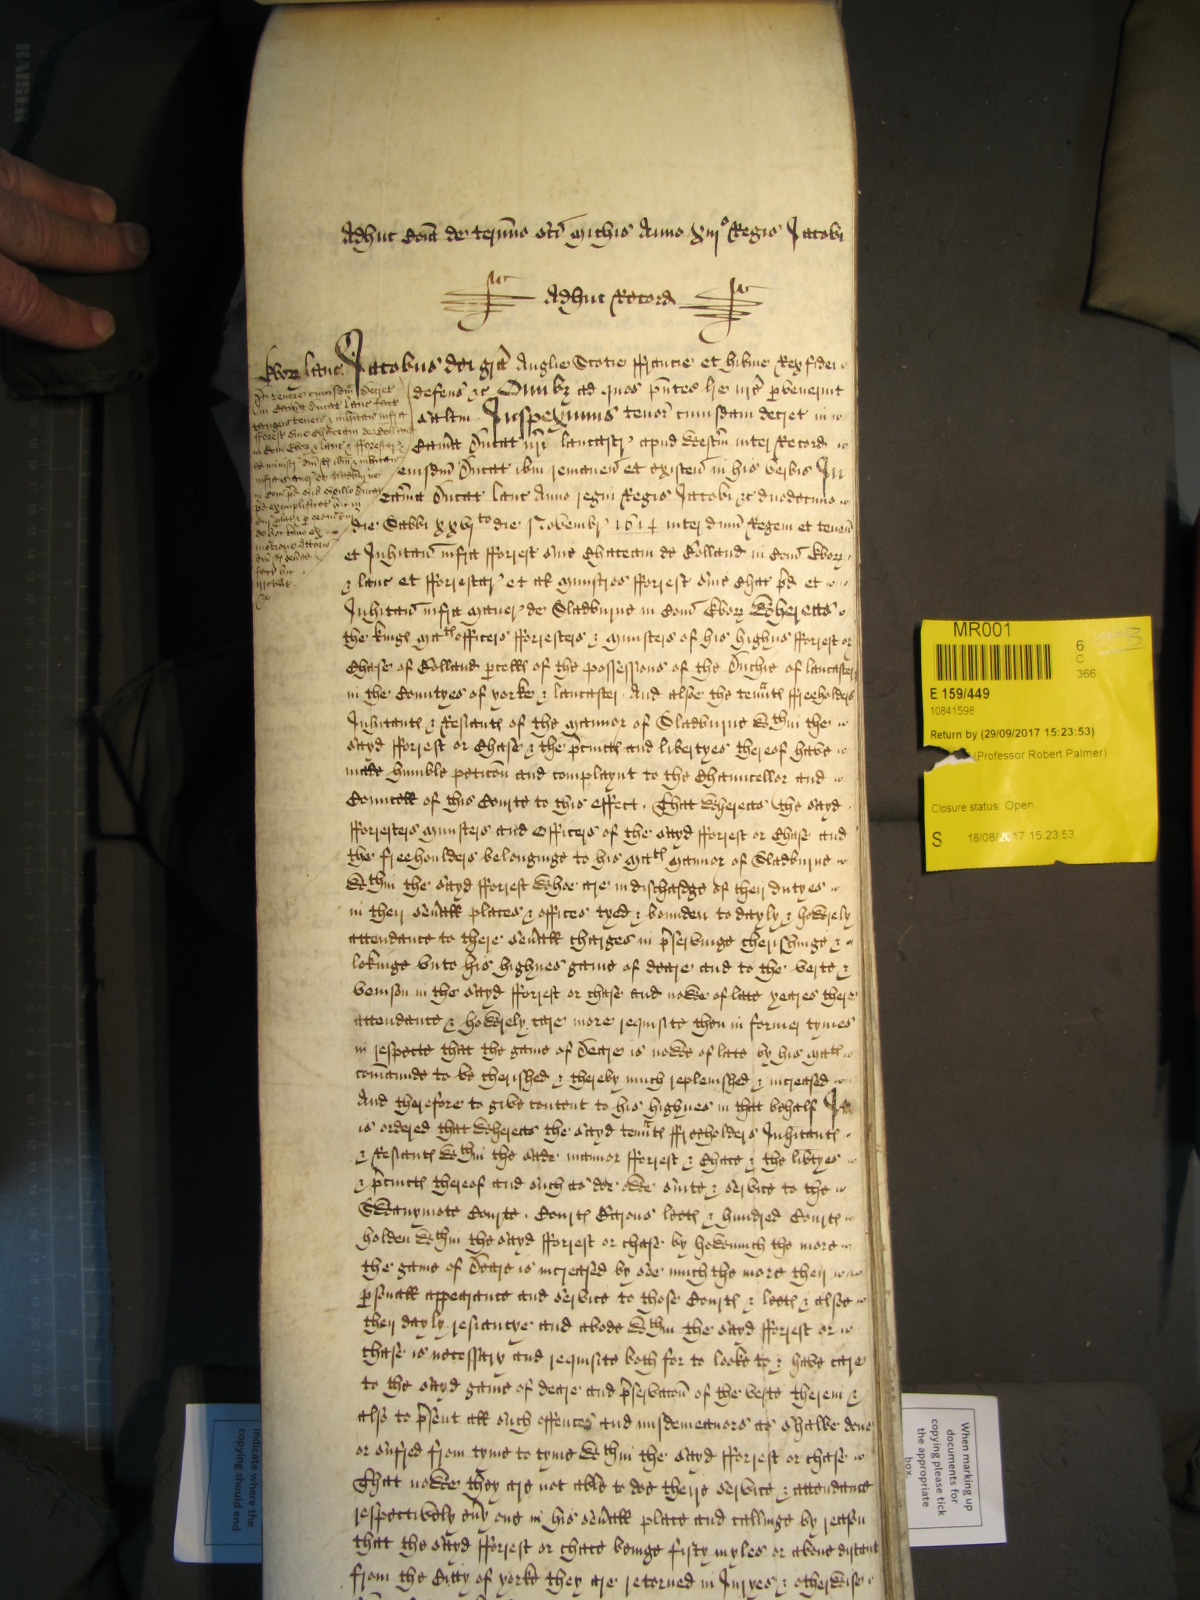 Adhuc Coiā de termino scī Michis Anno xiijº Regis Jacobi
Adhuc Record
Ebor Lanc
Jacobus dei grā Anglie Scotie ffrancie et hibnie Rex fidei
defens &c Omībz ad quos pñtes lre nrē pvenerint
saltm Inspeximus tenor cuiusdam decret in
Camā Ducat nrī Lancastr apud Westm inter Record
eiusdm Ducat ibm remanen et existen in his verbis In
Camā Ducat Lanc Anno regni Regis Jacobi &c duodecimo
die Sabbi xxvjto die Novembr 1614 inter dnm Regem et tenen
et Inhitan infra fforrest sive Chaceam de Bolland in Com Ebor
& Lanc et fforrestar et al ministros fforrest sive Chac pd et
Inhitan infra maner de Sladburne in Com Ebor Whereas
the Kings matie officers fforresters & ministers of his highnes fforrest or
Chase of Bolland pcell of the possessions of the Duchie of Lancaster
in the Countyes of yorke & Lancaster And alsoe the tennts ffreeholders
Inhitants & Resiants of the mannor of Sladburne wthin the
sayd fforrest or Chase & the pcincts and libertyes thereof have
made humble peticon and complaynt to the Chauncellor and
Councell of this Courte to this effect. That whereas the sayd
fforresters ministers and Officers of the sayd fforrest or Chase and
the freehoulders belonginge to his maties mannor of Sladburne
wthin the sayd fforrest whoe are in dischardge of their dutyes
in their sevall places & offices tyed & bounden to dayly & howrely
attendance to there sevall charges in pservinge cherishinge &
lokinge unto his highnes game of deare and to the verte &
venison in the sayd fforrest or chase and nowe of late yeares there
attendance & howrely care more requisite then in former tymes
in respecte that the game of Deare is nowe of late by his maties
comaunde to be cherished & thereby much replenished & increased
And therefore to give content to his highnes in that behalf It
is ordered that whereas the sayd tennts ffreeholders Inhitants
& Resiants wthin the sade mannor fforrest & Chace & the libtyes
& pcincts thereof and such as doe owe suite & service to the
Swanymote Courte. Courts Barons leets & hundred Courts
holden wthin the sayd fforrest or chase by howmuch the more
the game of Deare is increased by soe much the more their
psonall appearance and service to those Courts & leets & alsoe
their dayly resiantye and abode wthin the sayd fforrest or
chase is necessary and requisite both for to looke to & have care
to the sayd game of deare and pservacon of the verte therein &
also to psent all such offences and misdemeanors as shalbe done
or suffred from tyme to tyme wthin the sayd fforrest or chase
That nowe they are not able to doe theire service & attendance
respectively evy one in his sevall place and callinge by reason
that the sayd fforrest or chace beinge fifty myles or above distant
from the Citty of yorke they are retorned in Juryes & otherwise
MR001
6
C
366
E 159/449
10841598
Return by (29/09/2017 15:23:53)
(Professor Robert Palmer)
Closure status Open
S 18/08/2017 15:23:53
When marking up
documents for
copying please tick
the appropriate
box.
indicate where the
copying should end
HAISER